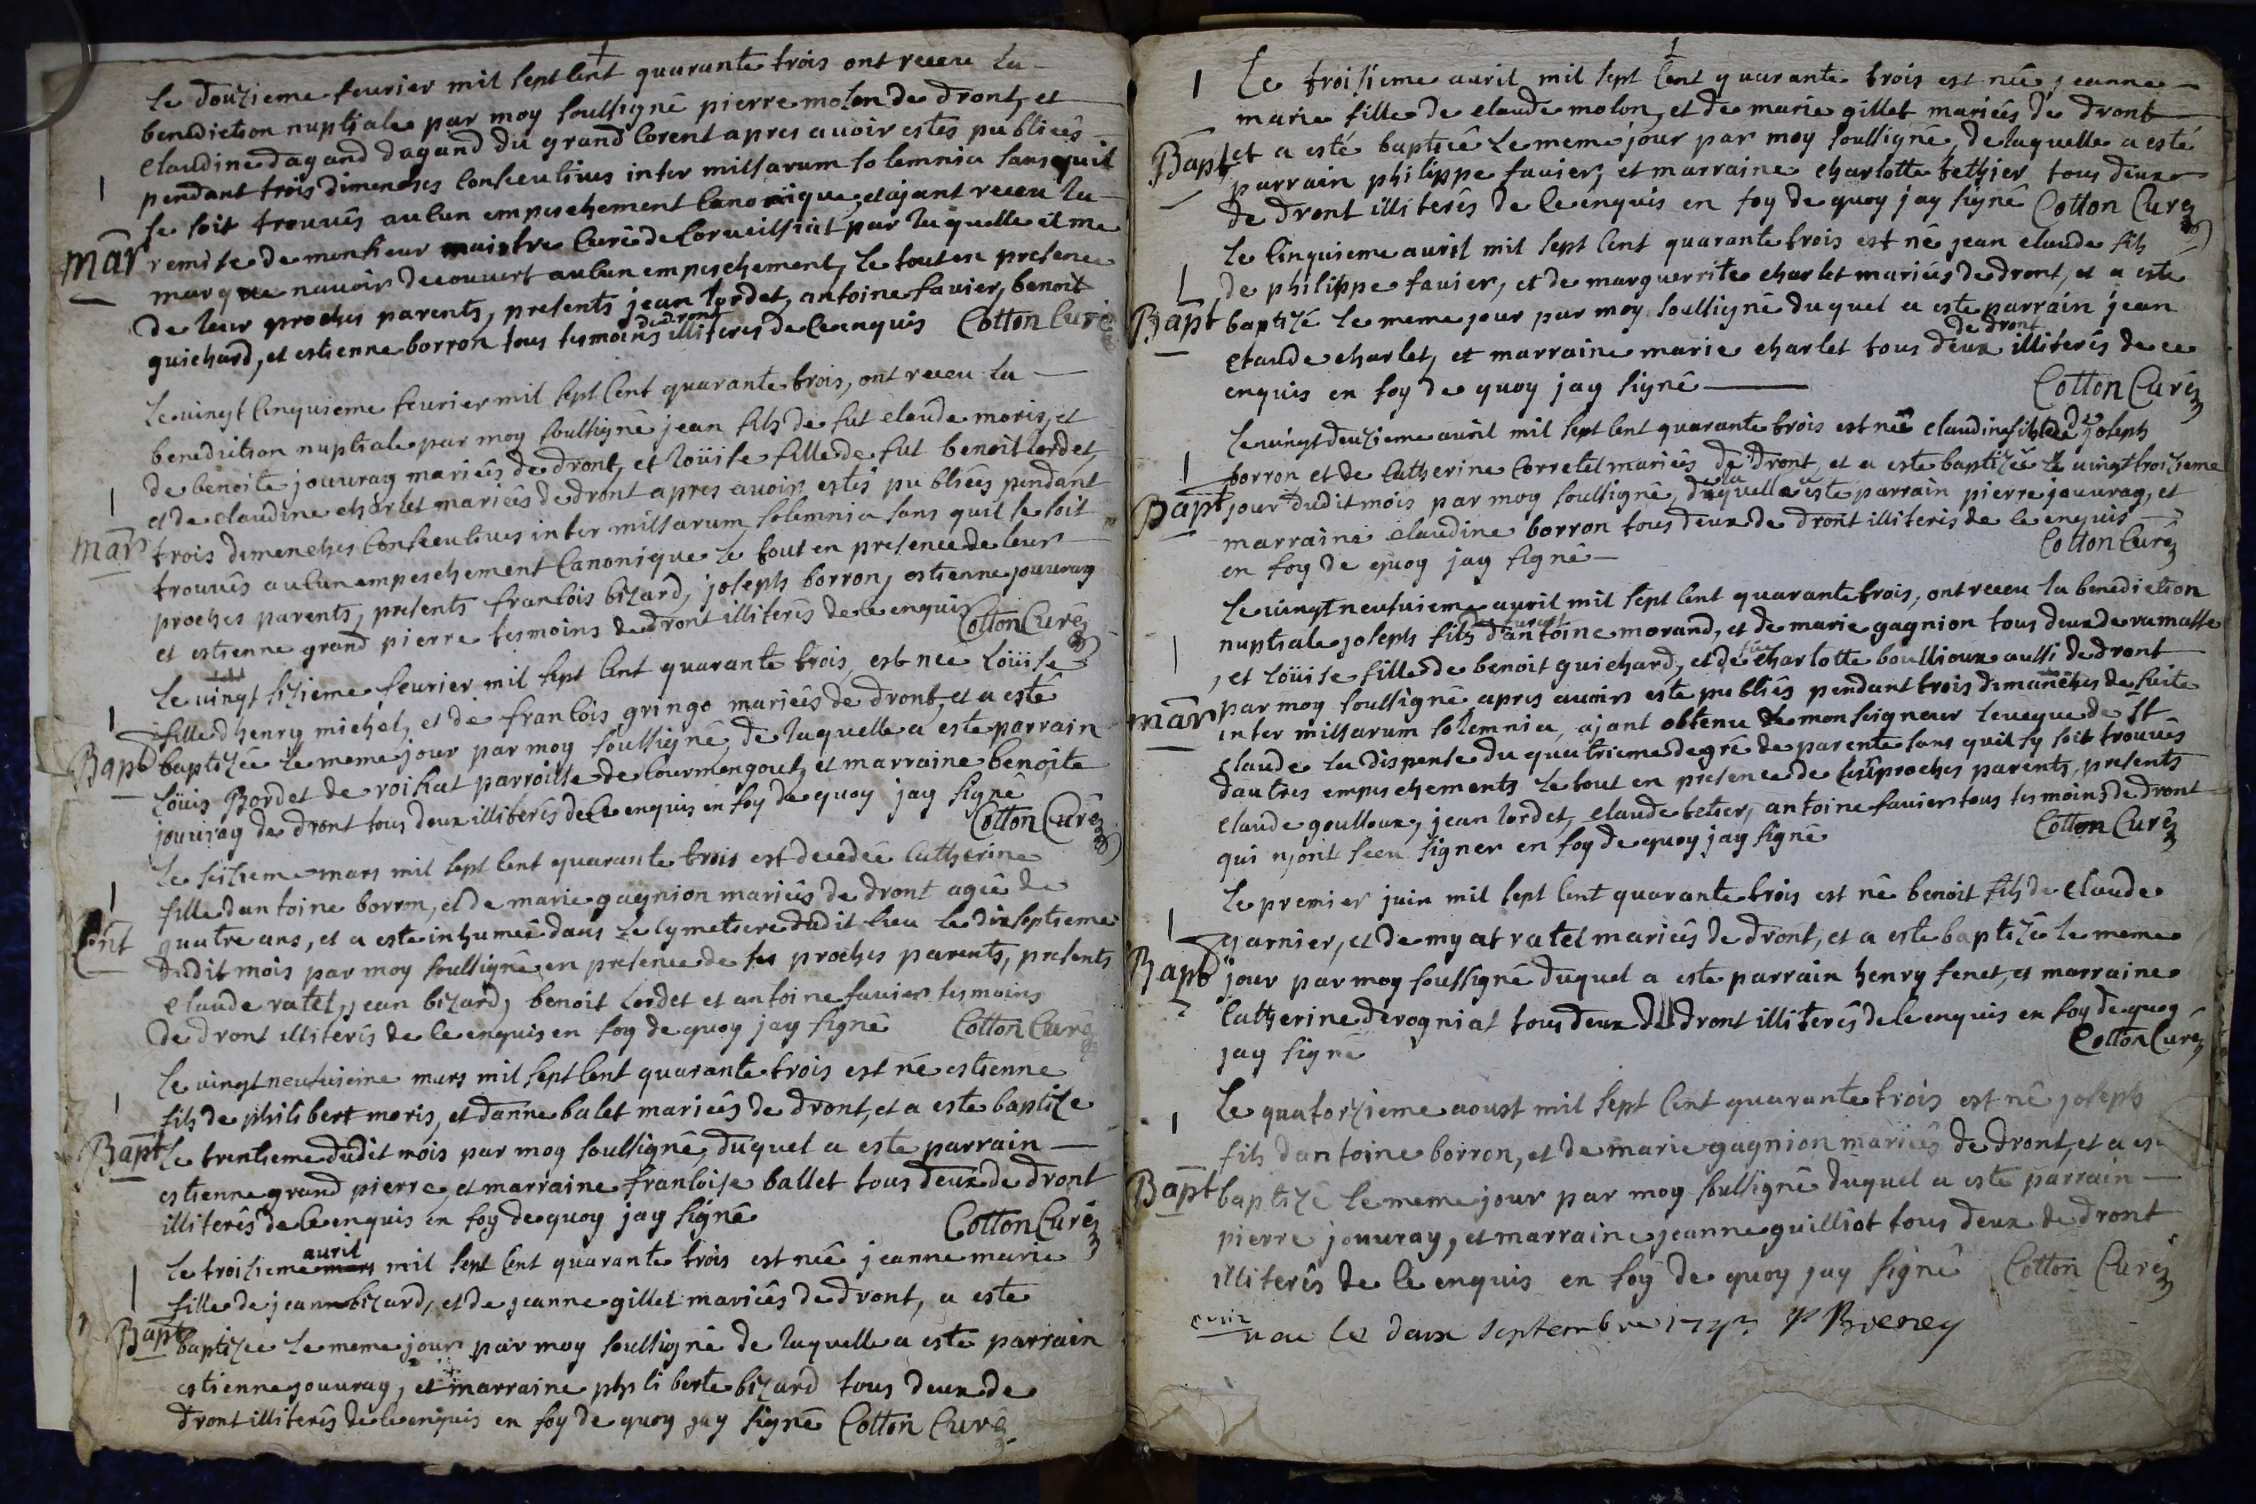 le douzieme feurier mil sept Cent quarante trois ont receu la
benediction nuptiale par moy soussigné pierre molon de dront, et
claudine dagand dagand du grand Corent apres auoir estes publiees
pendant trois dimenches Consecutiues inter missarum solemnia sans quil
se soit trouués aucun empeschement Canonique, et ajant receu la
mar remise de monsieur maistre Curé de Corueissiat par laquelle il me
marque nauoir decouuert aucun empeschement, le tout en presence
de leur proches parents, presents jean lordet, antoine fauier, benoit
guichard, et estienne borron tous tesmoins de dront illiterés de Ce enquis Cotton Curé
le vingt Cinquieme feurier mil sept Cent quarante trois, ont receu la
benediction nuptiale par moy soussigné jean fils de fut claude moris, et
de benoite jouuray mariés de dront, et loüise fille de fut benoit lordet,
et de claudine charlet mariés de dront apres auoir estés publiées pendant
mar trois dimenches Consecutiues inter missarum solemnia sans quil se soit
trouués aucun empeschement Canonique le tout en presence de leur
proches parents, presents francois bizard, joseph borron, estienne jouuray
et estienne grand pierre tesmoins de dront illiterés de Ce enquis Cotton Curé
le vingt sizieme feurier mil sept Cent quarante trois, est nee loüise
fille dhenry michel, et de francois gringo mariées de dront, et a esté
Bapt baptizée le meme jour par moy soussigné, de laquelle a este parrain
loüis Bordet de roissiat parroisse de Courmengout, et marraine benoite
jouuray de dront tous deux illiterés de Ce enquis en foy de quoy jay signé
Cotton Curé
le seizieme mars mil sept Cent quarante trois est decedée Catherine
fille dantoine borron, et de marie gagnion mariés de dront agée de
Ent quatre ans, et a este inhumée dans le Cymetiere dudit lieu le dixseptieme
dudit mois par moy soussigné en presence de ses proches parents, presents
claude ratel, jean bizard, benoit Lordet et antoine fauier tesmoins
de dront illiterés de Ce enquis en foy de quoy jay signé Cotton Curé
le vingt neufuieme mars mil sept Cent quarante trois est né estienne
fils de philibert moris, et danne balet mariés de dront, et a este baptize
Bapt Le trentieme dudit mois par moy soussigné, duquel a este parrain
estienne grand pierre, et marraine francoise ballet tous deux de dront
illiterés de Ce enquis en foy de quoy jay signé Cotton Curé
le troizieme mars auril mil sept Cent quarante trois est née jeanne marie
fille de jean bizard, et de jeanne gillet mariés de dront, a este
Bapt baptizee le meme jour par moy soussigné de laquelle a este parrain
estienne jouuray, et marraine philiberte bizard tous deux de
dront illiterés de Ce enquis en foy de quoy jay signé Cotton Curé
Le troisieme auril mil sept Cent quarante trois est née jeanne
marie fille de claude molon, et de marie gillet mariés de dront
Bapt et a esté baptiée le meme jour par moy soussigné, de laquelle a esté
parrain philippe fauier, et marraine charlotte bethier tous deux
de dront illiterés de Ce enquis en foy de quoy jay signé Cotton Curé
le Cinquieme auril mil sept Cent quarante trois est né jean claude fils
de philippe fauier, et de marguerrite charlet mariés de dront, et a este
Bapt baptizé le meme jour par moy soussigné duquel a este parrain jean
claude charlet, et marraine marie charlet tous deux de dront illiterés de ce
enquis en foy de quoy jay signé Cotton Curé
le vingt deuzieme auril mil sept Cent quarante trois est née claudine fille de joseph
borron et de Catherine Corretel mariés de dront, et a este baptizée le vingt troisieme
Bapt jour dudit mois par moy soussigné, de laquelle a este parrain pierre jouuray, et
marraine claudine borron tous deux de dront illiterés de Ce enquis
en foy de quoy jay signé Cotton Curé
le vingt neufuieme auril mil sept Cent quarante trois, ont receu la benediction
nuptiale joseph fils dantoine morand, et de marie gagnion tous deux de ramasse
, et loüise fille de benoit guichard, et de charlotte boullioux aussi de dront
mar par moy soussigné apres auoir este publiés pendant trois dimanches de suite
inter missarum solemnia, ajant obtenu de monseigneur leueque de St
claude la dispense du quatrieme degré de parente sans quil sy soit trouués
dautres empeschements le tout en presence de leur proches parents, presents
claude goulloux, jean lordet, claude betier, antoine fauier tous tesmoins de dront
qui njont sceu signer en foy de quoy jay signé Cotton Curé
le premier juin mil sept Cent quarante trois est né benoit fils de claude
garnier, et de myat ratel mariés de dront, et a este baptizé le meme
Bapt jour par moy soussigné duquel a este parrain henry fenet, et marraine
Catherine derogniat tous deux de dront illiterés de Ce enquis en foy de quoy
jay signé Cotton Curé
le quatorzieme aoust mil sept Cent quarante trois est né joseph
fils dantoine borron, et de marie gagnion mariés de dront, et a es
Bapt baptizé le meme jour par moy soussigné duquel a este parrain
pierre jouuray, et marraine jeanne guilliot tous deux de dront
illiterés de Ce enquis en foy de quoy jay signé Cotton Curé
vae le deux septembre